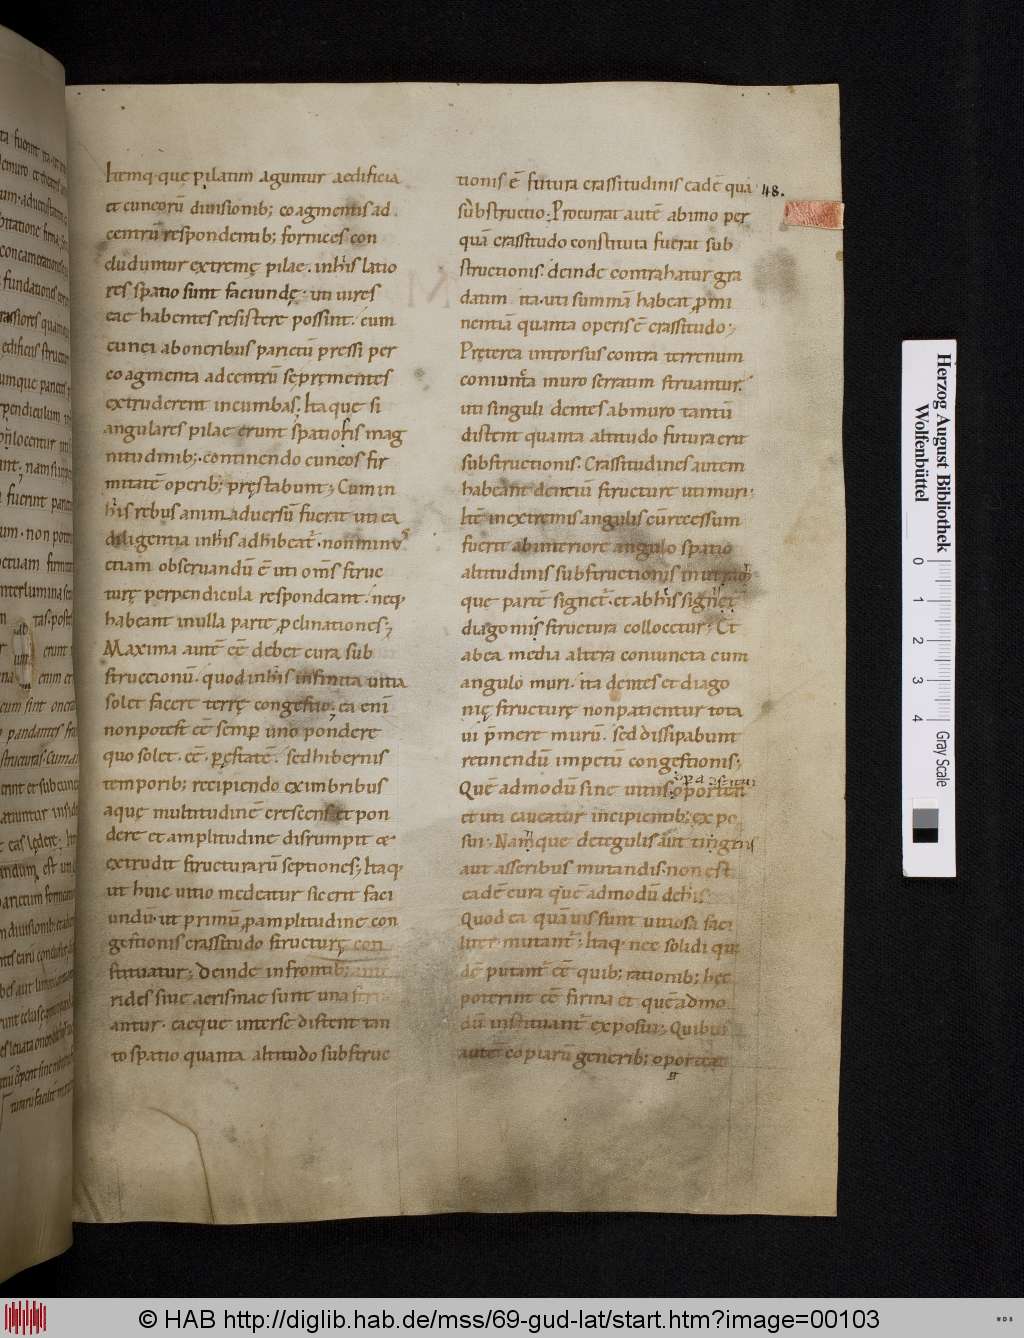 Itemq· que pilatim aguntur aedificia
et cuneorū diuisionib; coagmentis ad
centrū respondentib; fornices con
duduntur extremę pilae. inhis latio
res spatio sunt faciundę· uti uires
eae habentes resistere possint. cum
cunei aboneribus parietū pressi per
coagmenta adcentrū se pręmentes
extruderent incumbas. Itaque si
angulares pilae erunt spatiosis mag
nitudinib;· continendo cuneos fir
mitatē operib; pręstabunt; Cum in
his rebus animaduersū fuerit uti ea
diligentia inhis adhibeat· non minus
etiam obseruandū ē uti oms̄ struc
turę perpendicula respondeant. neq·
habeant inulla parte proclinationes;
Maxima autē eē debet cura sub
struccionū· quod inhis infinita uitia
solet facere terrę congestio. ea eni
non potest eē semp uno pondere
quo solet· eē· p ęstatē. sed hibernis
temporib; recipiendo eximbribus
aquę multitudinē crescens et pon
dere et amplitudine disrumpit et
extrudit structurarū septiones; Itaq·
ut huic uitio medeatur sic erit faci
undū· ut primū pro amplitudine con
gestionis crassitudo structurę con
stituatur; deinde in frontib; ante
rides siue aerismae sunt una stru
antur· eaeque inter se distent tan
to spatio quanta altitudo substruc
tionis ē futura crassitudinis eadē quā
substructio; Procurrat autē abimo per
quā crassitudo constituta fuerat sub
structionis. deinde contrahatur gra
datim ita· uti summā habeat promi
nentiā quanta operis ē crassitudo;
Pręterea introrsus contra terrenum
coniuncta muro serratim struantur.
uti singuli dentes abmuro tantū
distent quanta altitudo futura erit
substructionis. Crassitudines autem
habeant dentiū structure uti muri;
Itē inextremis angulis cū recessum
fuerit abinteriore angulo spatio
altitudinis substructionis in utraq·
que partē signet. et abhis signet
diagoniis structura collocetur; Et
abea media altera coniuncta cum
angulo muri. ita dentes et diago
nię structurę non patientur tota
ui p̄mere murū. sed dissipabunt
retinendū impetū congestionis;
Quē admodū sine uitiis opera oporteat
et uti caueatur incipientib; expo
sui; Namque detegulis aut tignis
aut asseribus mutandis. non est
eadē cura quē admodū dehis.
Quod ea quāuis sunt uitiosa faci
liter mutant; Itaq· nec solidi qui
dē putant eē quib; rationib; hec
poterint eē firma et quēadmo
dū instituant exposui; Quibus
autē copiarū generib; oporteat
48.
Herzog August Bibliothek
Wolfenbüttel
0 1 2 3 4
Gray Scale
© HAB http://diglib.hab.de/mss/69-gud-lat/start.htm?image=00103